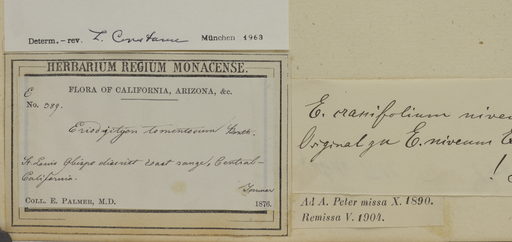 Determ. – rev. L. Constance München 1963
HERBARIUM REGIUM MONACENSE.
C
FLORA OF CALIFORNIA, ARIZONA, &c.
No. 389.
Eriodictyon tomentosum Benth.
St. Louis Obispo district coast range, Central-
California.
Summer
COLL. E. PALMER, M.D. 1876.
E. crassifolium niveu
Original zu E. niveum E
!
Ad A. Peter missa X. 1890.
Remissa V. 1904.